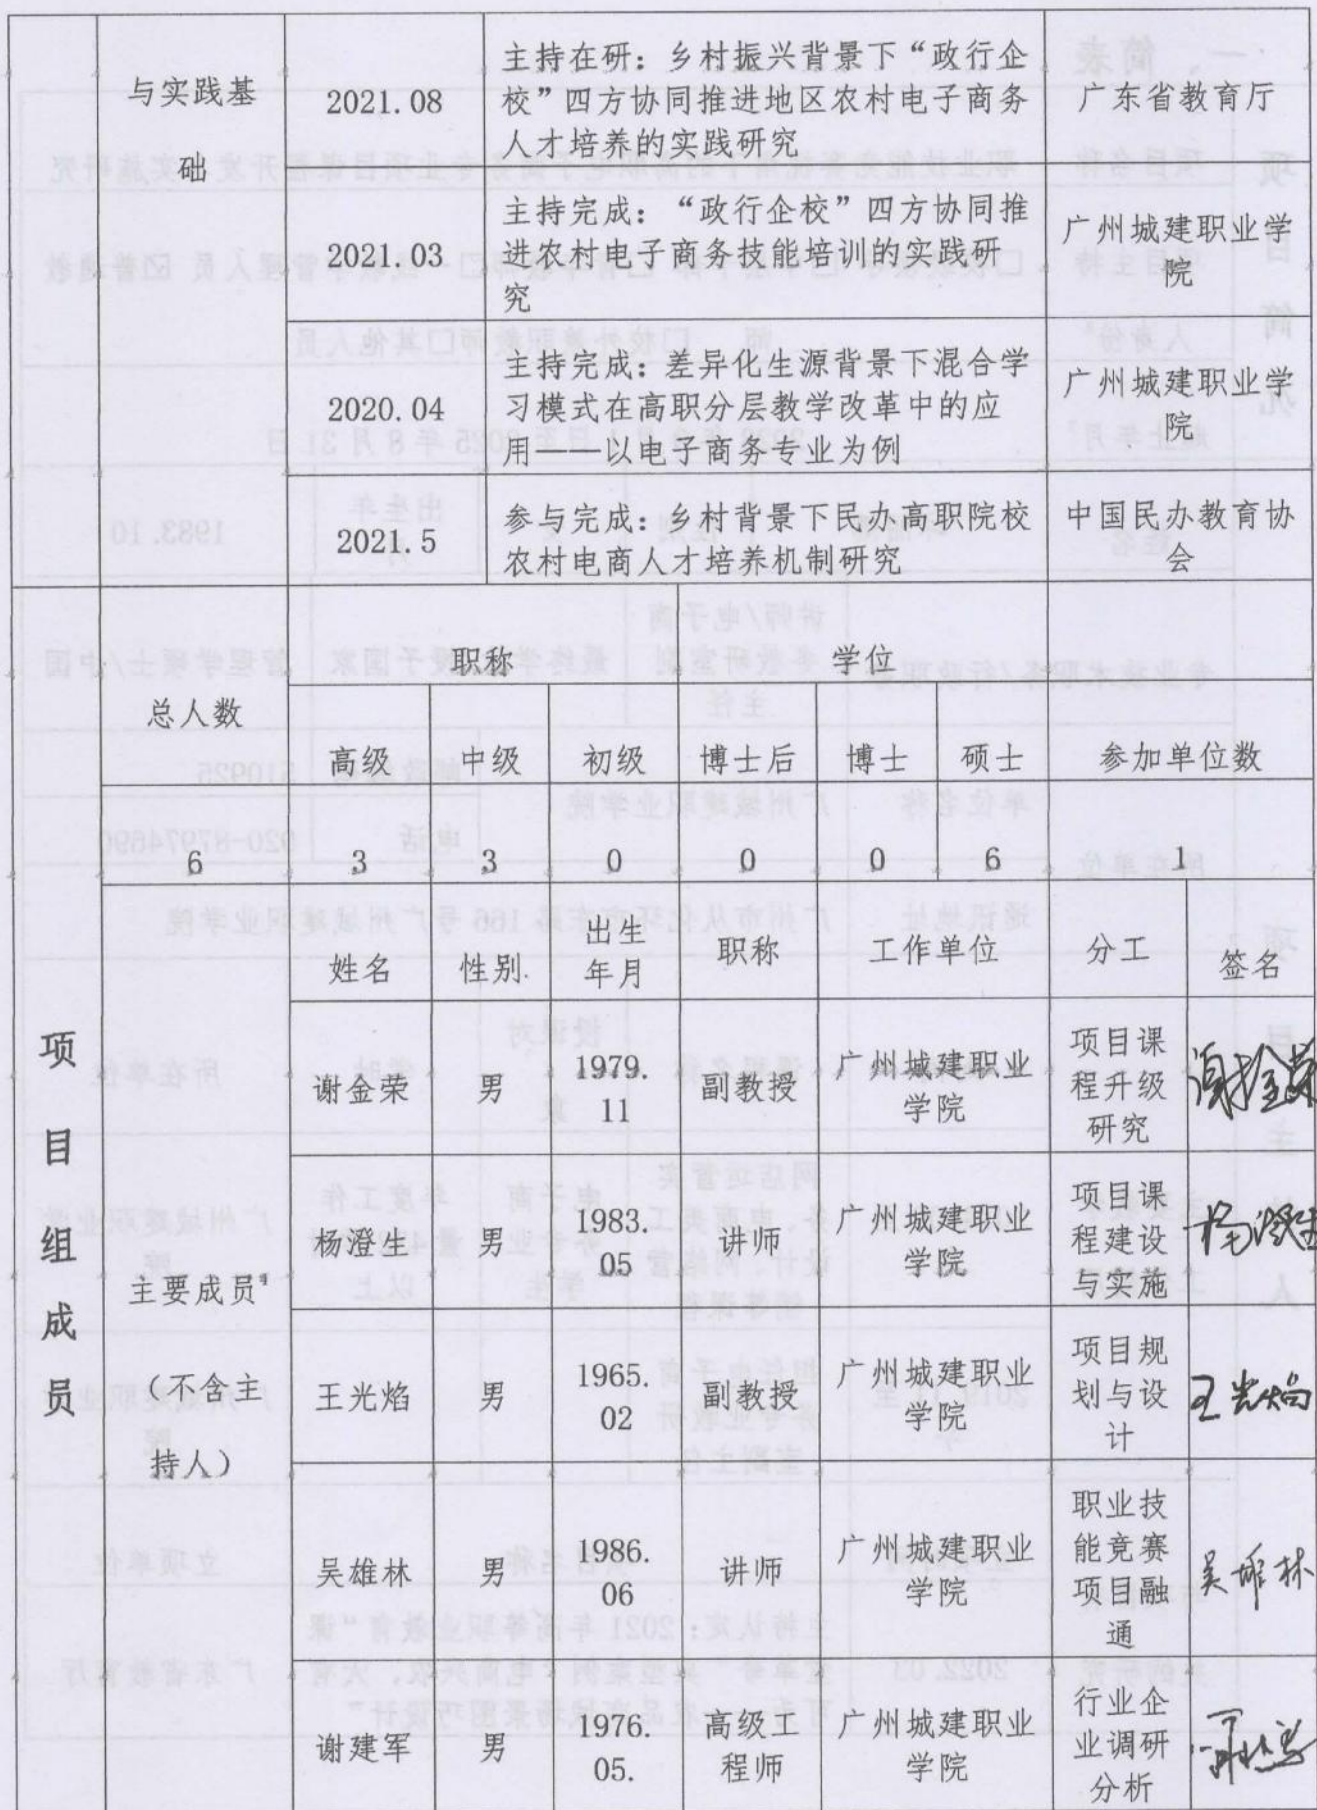 与实践基
础
2021.08
主持在研：乡村振兴背景下“政行企
校”四方协同推进地区农村电子商务
人才培养的实践研究
广东省教育厅
2021.03
主持完成：“政行企校”四方协同推
进农村电子商务技能培训的实践研
究
广州城建职业学
院
2020.04
主持完成：差异化生源背景下混合学
习模式在高职分层教学改革中的应
用——以电子商务专业为例
广州城建职业学
院
2021.5
参与完成：乡村背景下民办高职院校
农村电商人才培养机制研究
中国民办教育协
会
项目组成员
总人数
职称
学位
参加单位数
高级
中级
初级
博士后
博士
硕士
6
3
3
0
0
0
6
1
主要成员⁴
（不含主
持人）
姓名
性别
出生
年月
职称
工作单位
分工
签名
谢金荣
男
1979.
11
副教授
广州城建职业
学院
项目课
程升级
研究
谢金荣
杨澄生
男
1983.
05
讲师
广州城建职业
学院
项目课
程建设
与实施
杨澄生
王光焰
男
1965.
02
副教授
广州城建职业
学院
项目规
划与设
计
王光焰
吴雄林
男
1986.
06
讲师
广州城建职业
学院
职业技
能竞赛
项目融
通
吴雄林
谢建军
男
1976.
05.
高级工
程师
广州城建职业
学院
行业企
业调研
分析